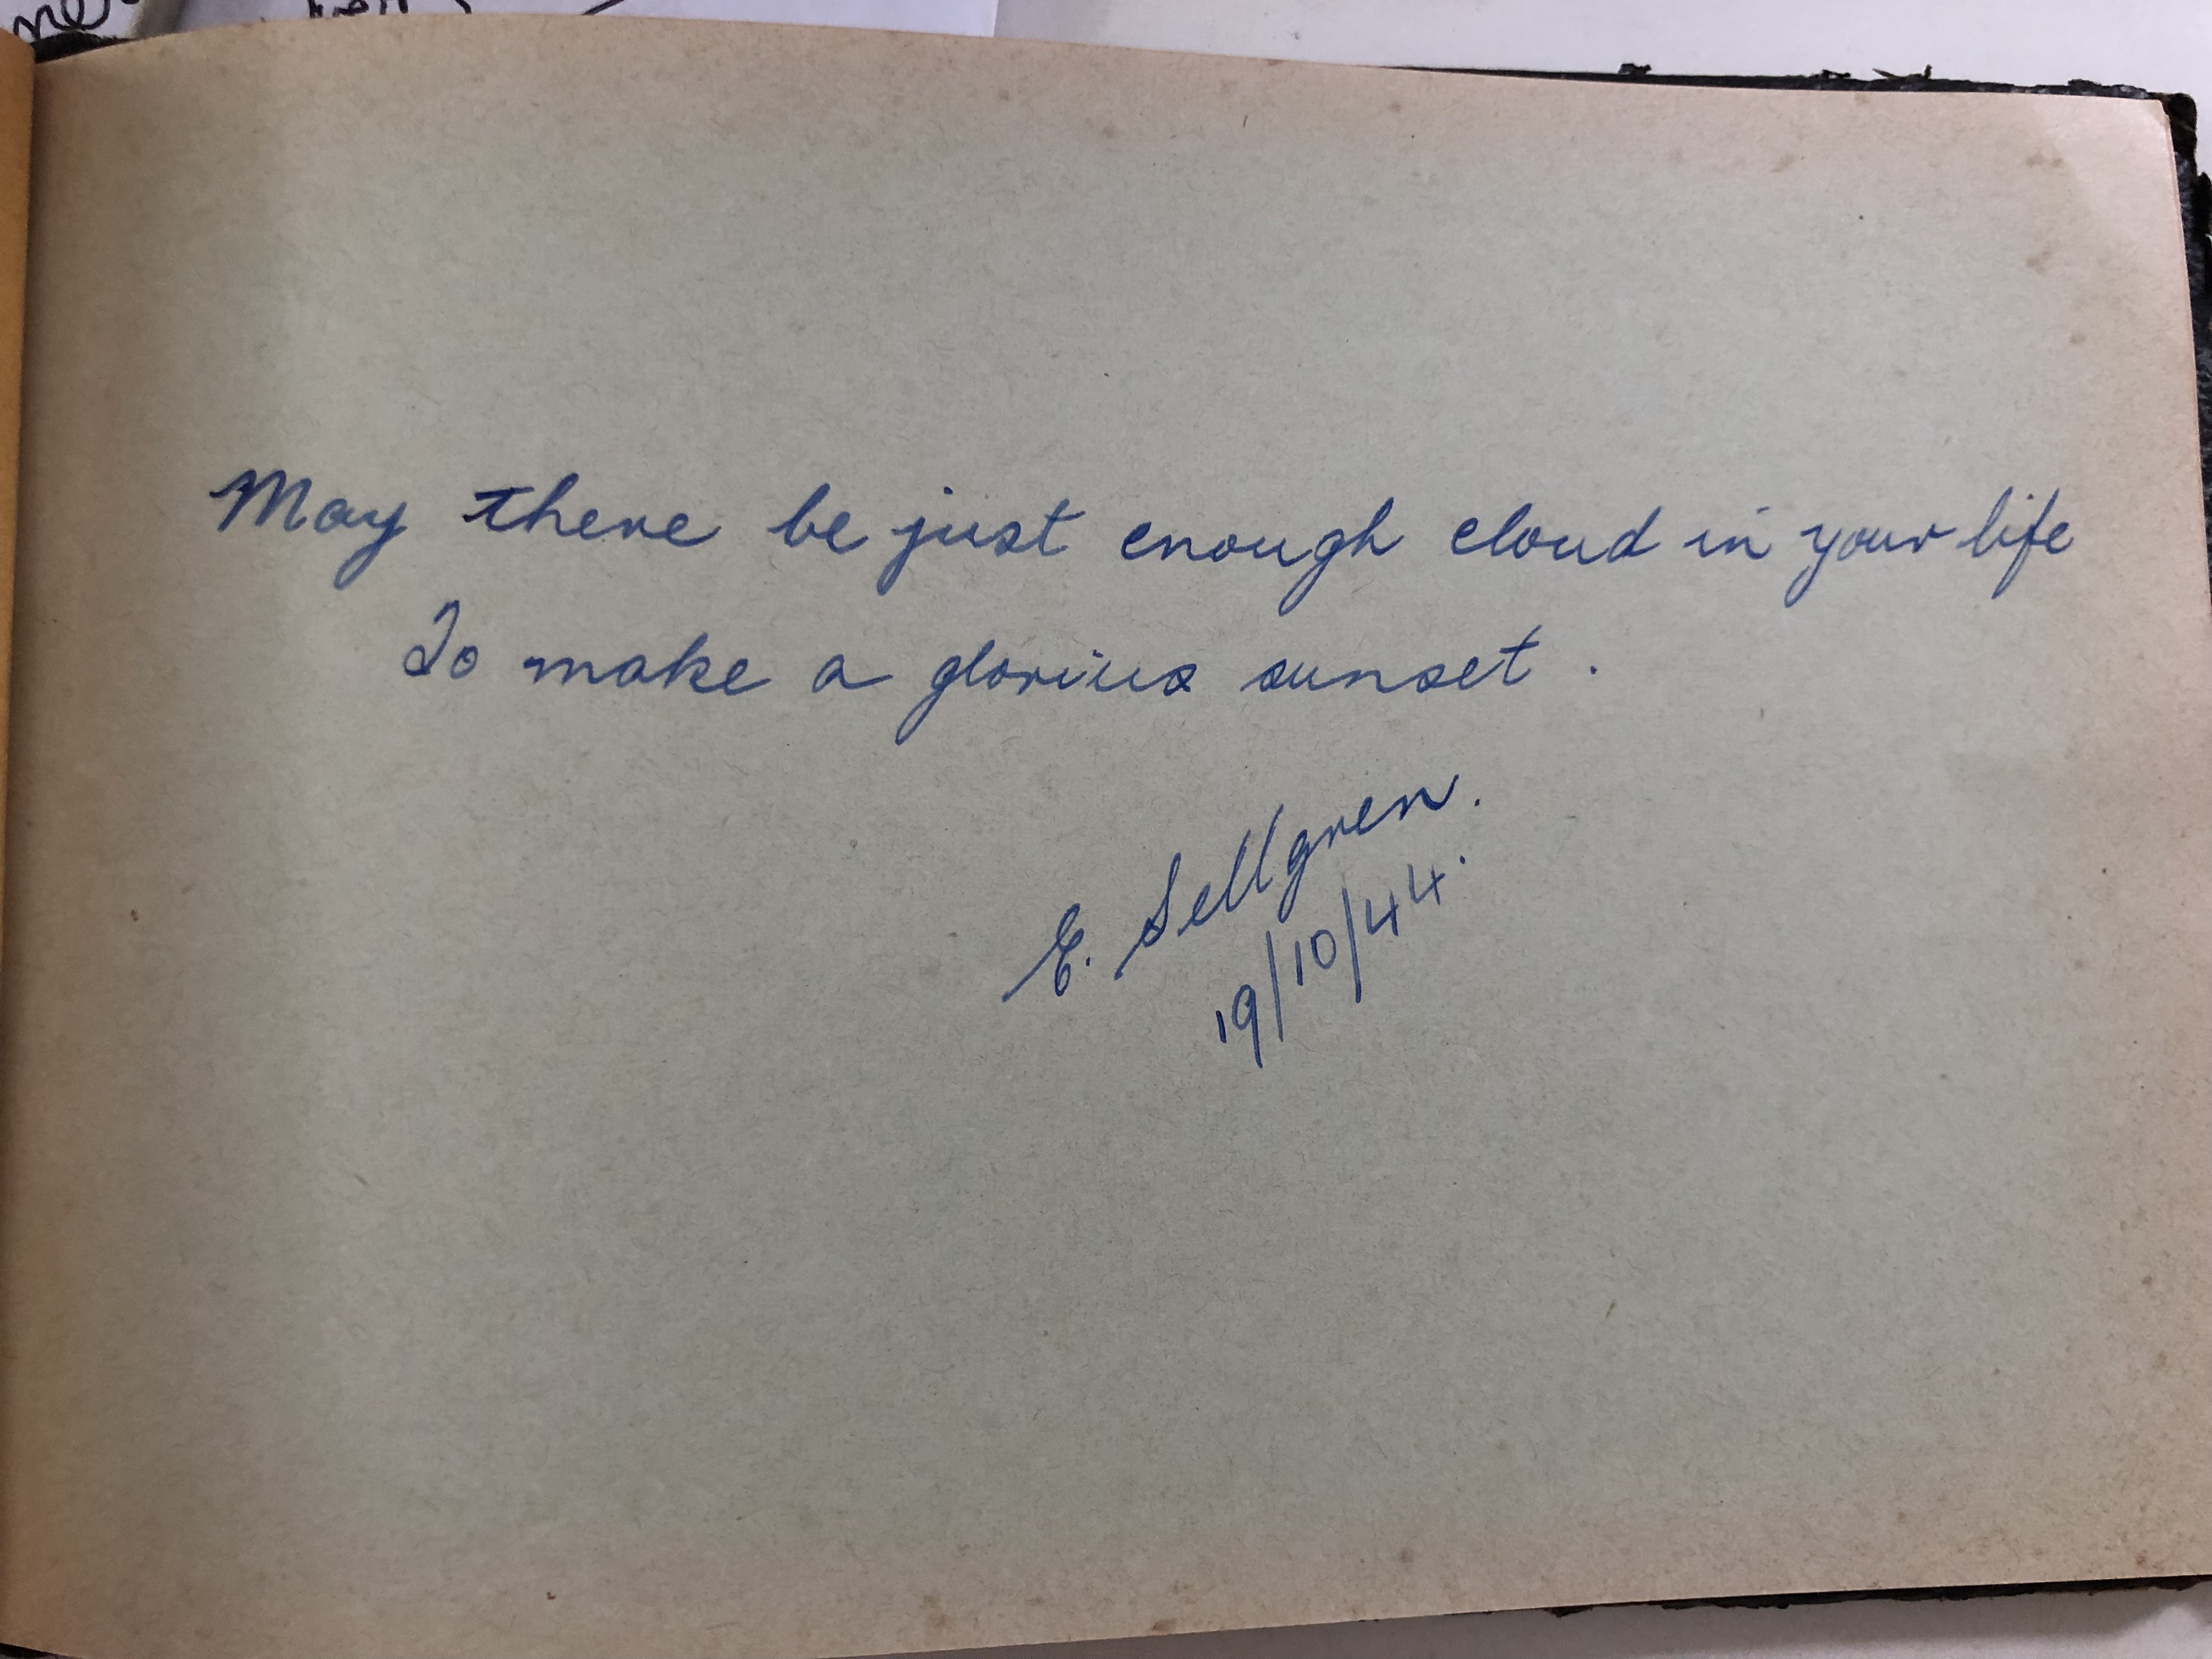 May there be just enough cloud in your life
To make a glorius sunset.
E. Sellgren.
19/10/44.